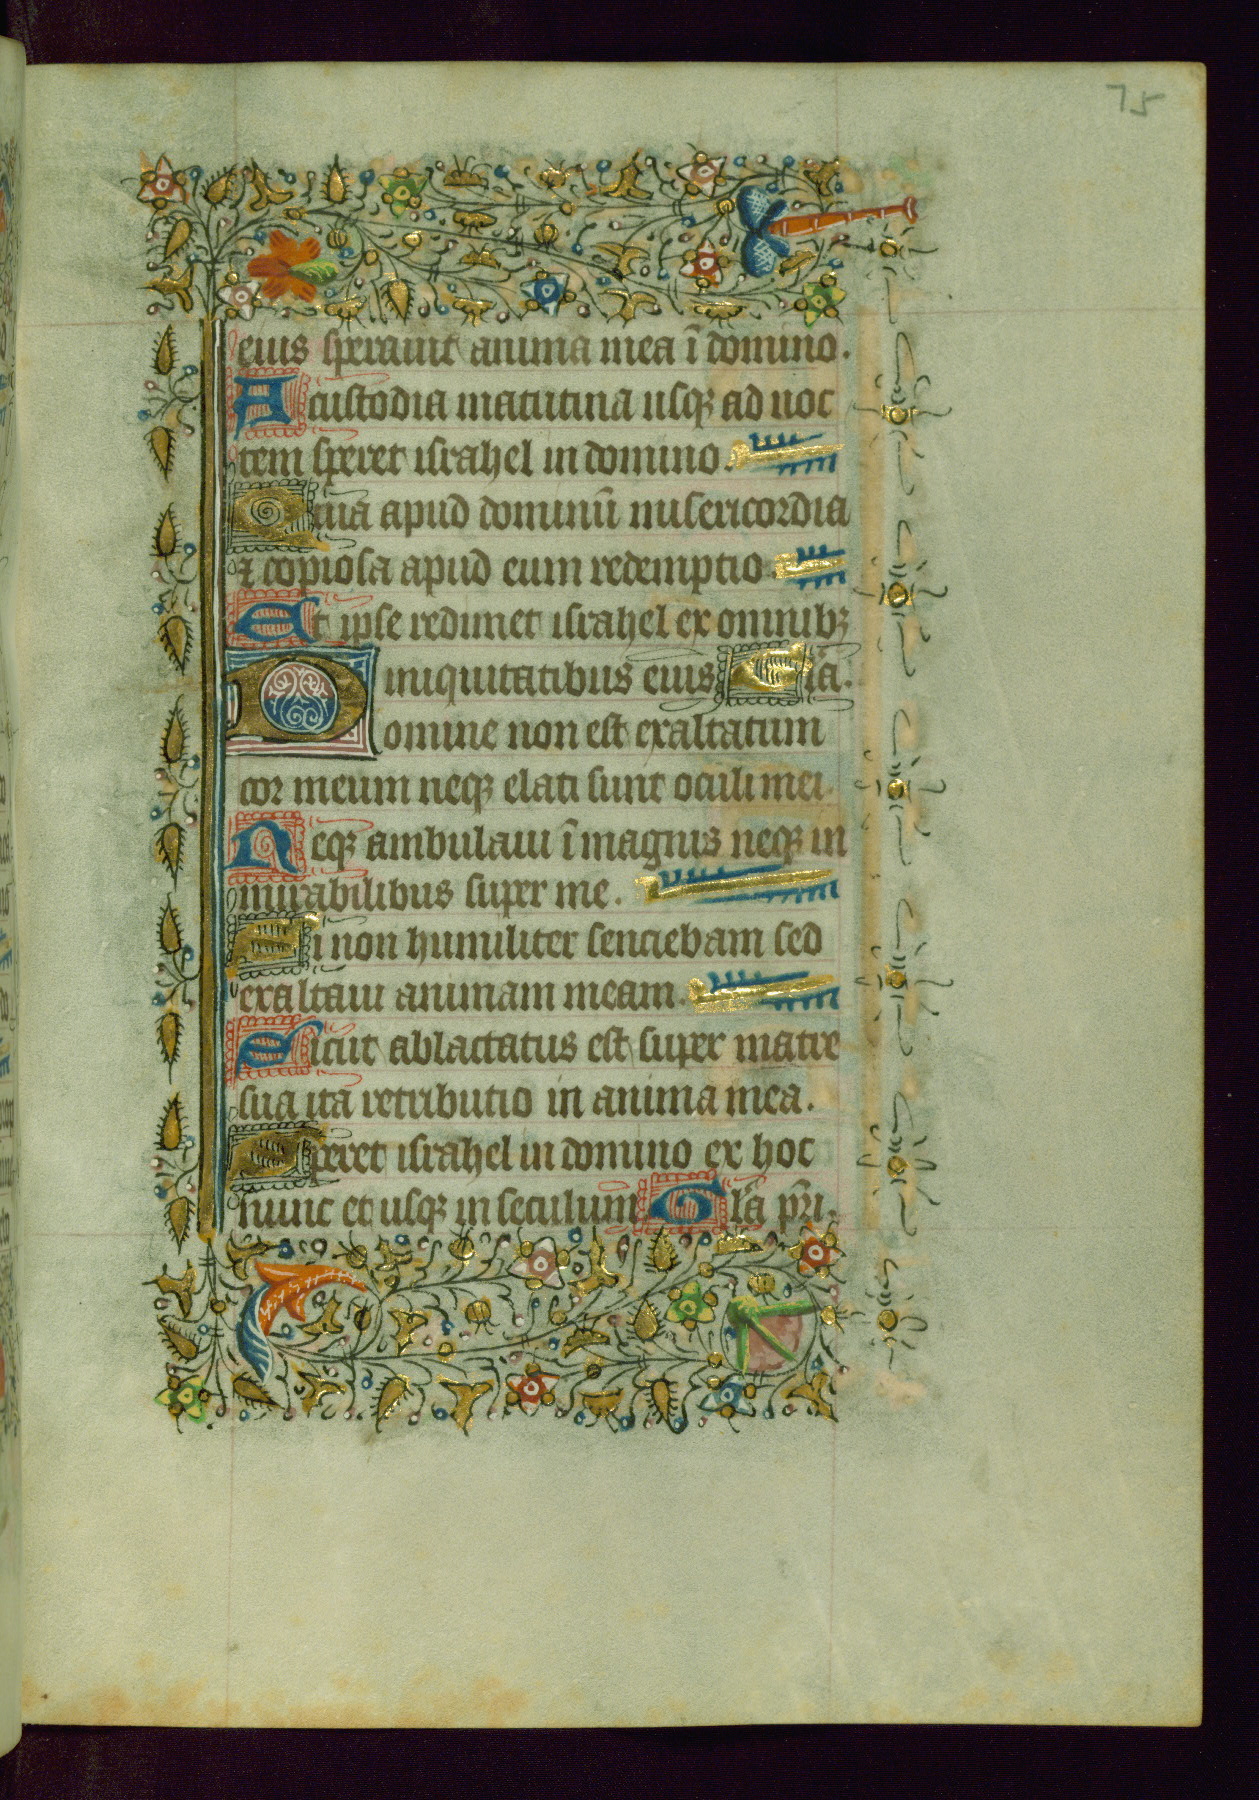 75
eius sperauit anima mea ī domino.
A custodia matutina usqꝫ ad noc
tem speret israhel in domino.
Quia apud dominū misericordia
⁊ copiosa apud eum redemptio
Et ipse redimet israhel ex omnibꝫ
iniquitatibus eius Gl̄ia.
Domine non est exaltatum
cor meum neqꝫ elati sunt oculi mei
Neqꝫ ambulaui ī magnis neqꝫ in
mirabilibus super me.
Si non humiliter senciebam sed
exaltaui animam meam.
Sicut ablactatus est super matre
sua ita retributio in anima mea.
Speret israhel in domino ex hoc
nunc et usqꝫ in seculum Gl̄a pr̄i.